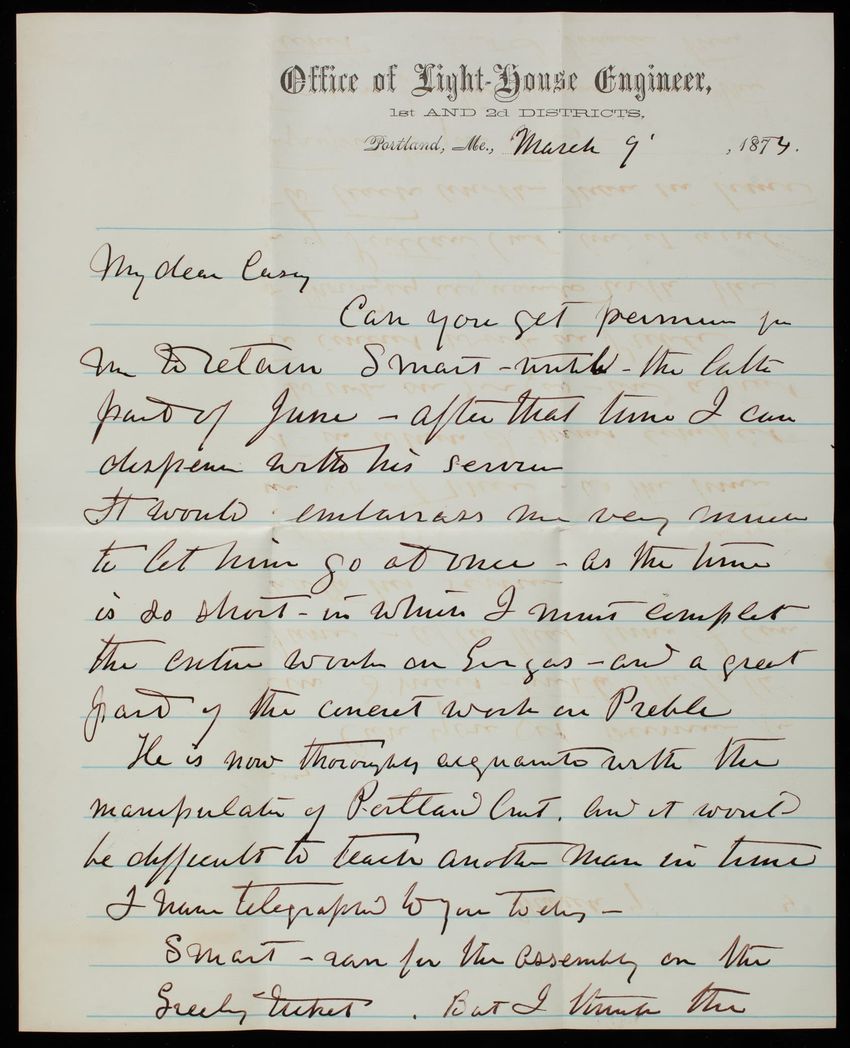 Office of Light-House Engineer,
1st AND 2d DISTRICTS,
Portland, Me., March 9 , 1874.
My dear Casey
Can you get permission for
me to retain Smart - until - the latter
part of June - after that time I can
dispense with his services
It would embarrass me very much
to let him go at once - as the time
is so short - in which I must complete
the entire work on Gorges - and a great
part of the concrete work on Preble
He is now thoroughly acquainted with the
manipulation of Portland Cement. and it would
be difficult to teach another man in time
I have telegraphed to you today -
Smart - ran for the Assembly on the
Greeley Ticket . But I think the